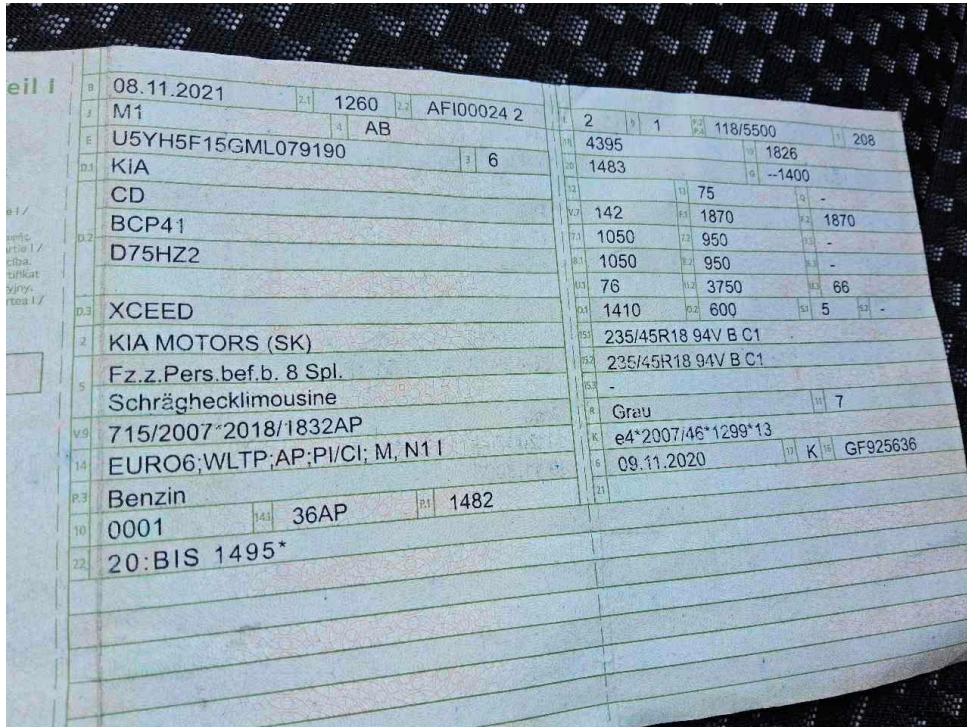 eil I
B 08.11.2021 2.1 1260 2.2 AFI00024 2
J M1 4 AB
E U5YH5F15GML079190 3 6
D.1 KiA
CD
D.2 BCP41
D75HZ2
D.3 XCEED
2 KIA MOTORS (SK)
5 Fz.z.Pers.bef.b. 8 Spl.
Schräghecklimousine
V.9 715/2007*2018/1832AP
14 EURO6;WLTP;AP;PI/CI; M, N1 I
P.3 Benzin
10 0001 14.1 36AP P.1 1482
22 20:BIS 1495*
2 9 1 P.2 P.4 118/5500 T 208
18 4395 19 1826
20 1483 G --1400
12 13 75 Q -
V.7 142 F.1 1870 F.2 1870
7.1 1050 7.2 950 7.3 -
8.1 1050 8.2 950 8.3 -
U.1 76 U.2 3750 U.3 66
O.1 1410 O.2 600 S.1 5 S.2 -
15.1 235/45R18 94V B C1
15.2 235/45R18 94V B C1
15.3 -
R Grau 11 7
K e4*2007/46*1299*13
6 09.11.2020 17 K 16 GF925636
21